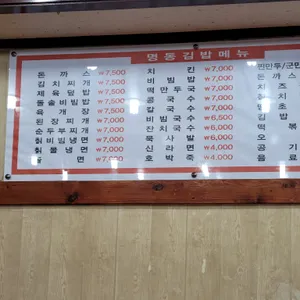 명동김밥메뉴
돈까스 ₩7,500
김치찌개 ₩7,500
제육덮밥 ₩7,500
돌솥비빔밥 ₩7,500
육개장 ₩7,000
된장찌개 ₩7,000
순두부찌개 ₩7,000
칡비빔냉면 ₩7,000
칡물냉면 ₩7,000
쫄면 ₩7,000
치킨 ₩7,000
비빔밥 ₩7,000
떡만두국 ₩7,000
콩국수 ₩7,000
칼국수 ₩7,000
비빔국수 ₩6,500
잔치국수 ₩6,000
목사발 ₩6,000
신라면 ₩4,000
호박죽 ₩4,000
만만두/군만
돈까스
치즈
참치
충
김밥
떡볶
오
공기
음료